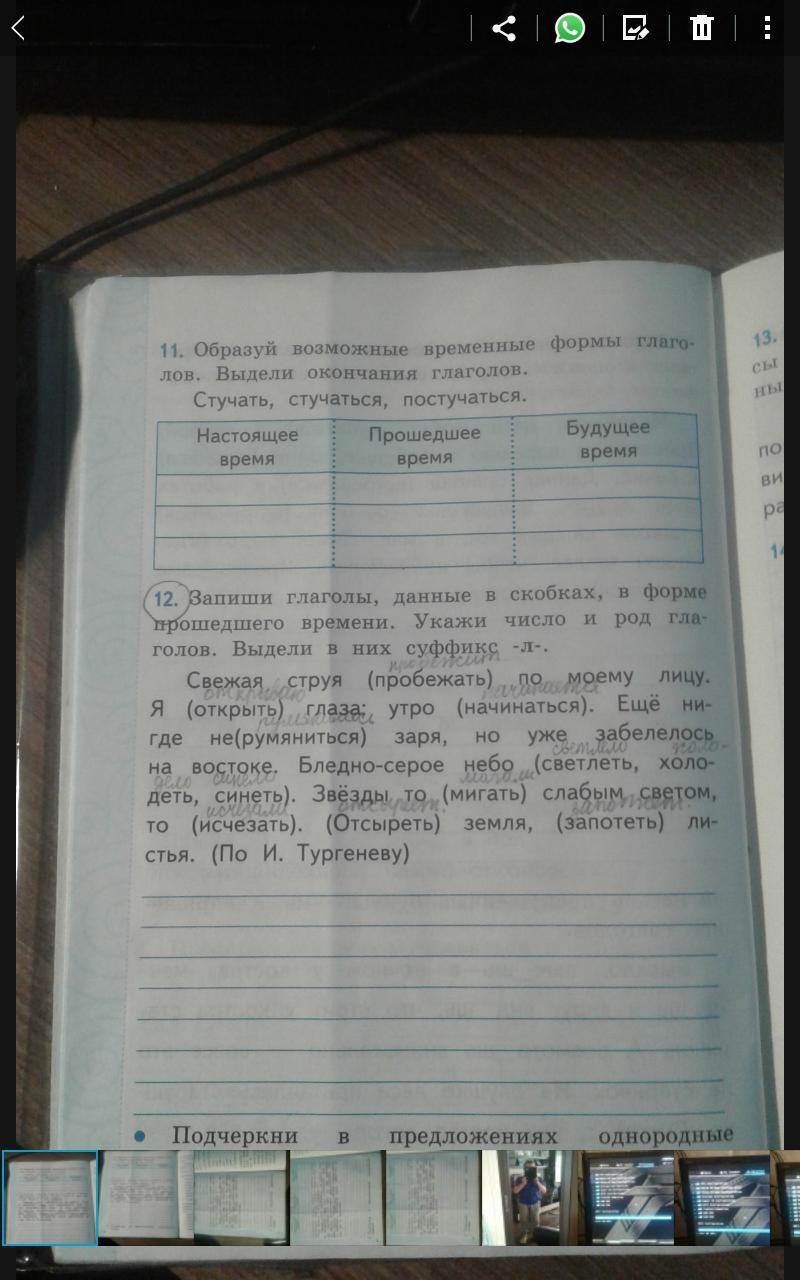 11. Образуй возможные временные формы глаго-
лов. Выдели окончания глаголов.
Стучать, стучаться, постучаться.
Настоящее время
Прошедшее время
Будущее время
12. Запиши глаголы, данные в скобках, в форме
прошедшего времени. Укажи число и род гла-
голов. Выдели в них суффикс -л-.
пробежит
Свежая струя (пробежать) по моему лицу.
открываю начинается
Я (открыть) глаза: утро (начинаться). Ещё ни-
где не(румяниться) заря, но уже забелелось
светлело холо-
на востоке. Бледно-серое небо (светлеть, холо-
дело синело мигали
деть, синеть). Звёзды то (мигать) слабым светом,
исчезали
то (исчезать). (Отсыреть) земля, (запотеть) ли-
стья. (По И. Тургеневу)
• Подчеркни в предложениях однородные
13.
сы
ны
по
ви
ра
14